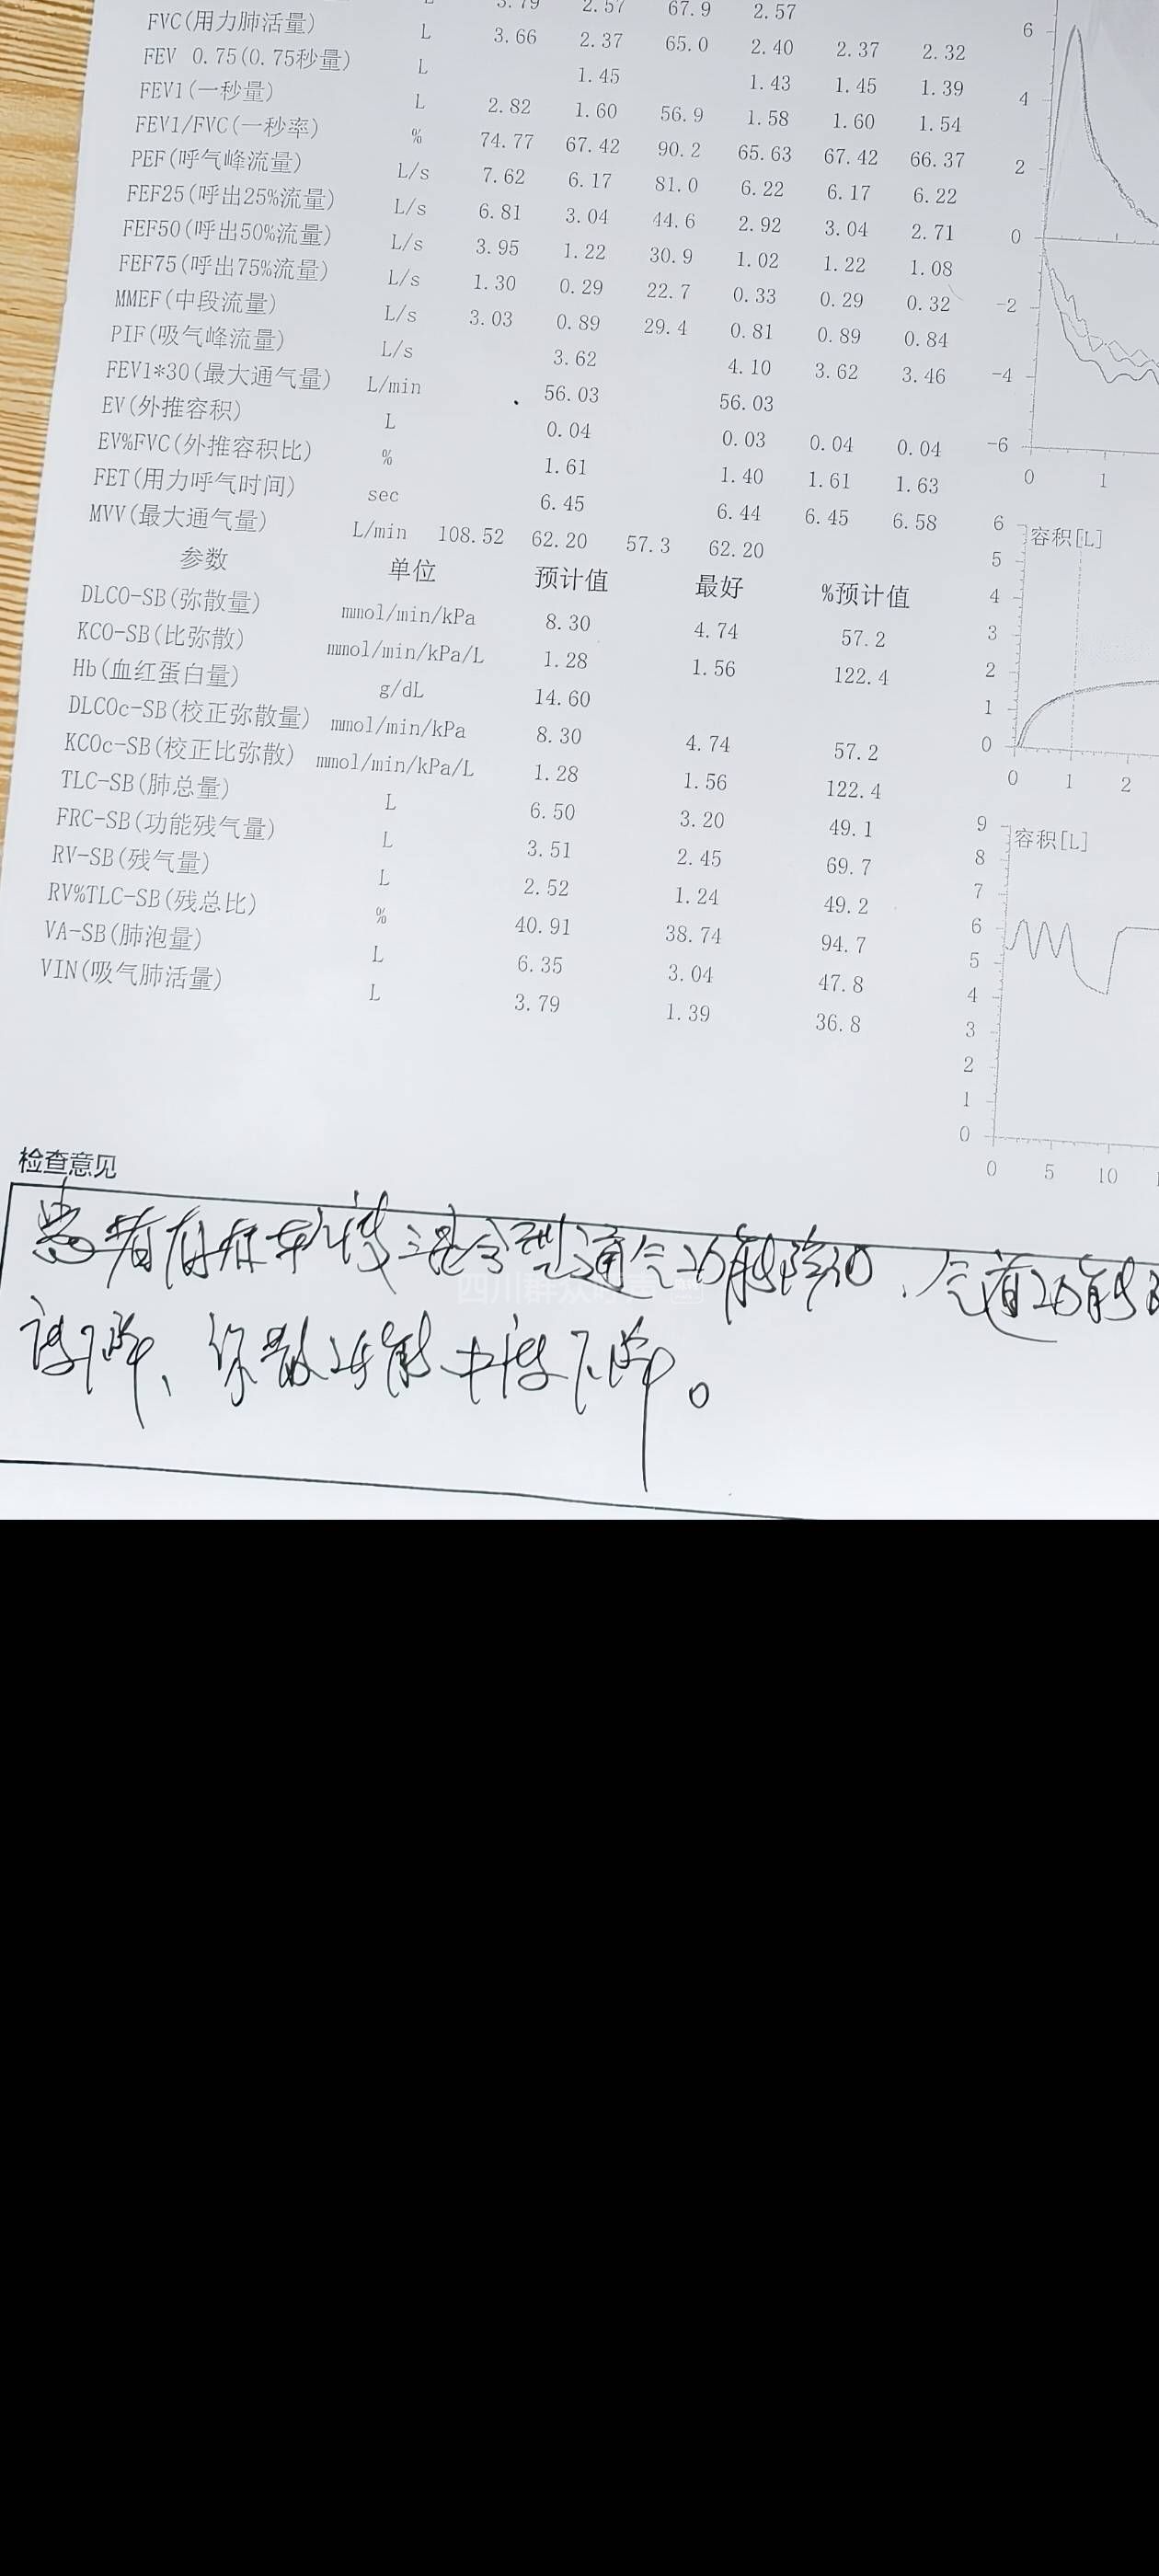 3.79 2.57 67.9 2.57
FVC(用力肺活量) L 3.66 2.37 65.0 2.40 2.37 2.32
FEV 0.75(0.75秒量) L 1.45 1.43 1.45 1.39
FEV1(一秒量) L 2.82 1.60 56.9 1.58 1.60 1.54
FEV1/FVC(一秒率) % 74.77 67.42 90.2 65.63 67.42 66.37
PEF(呼气峰流量) L/s 7.62 6.17 81.0 6.22 6.17 6.22
FEF25(呼出25%流量) L/s 6.81 3.04 44.6 2.92 3.04 2.71
FEF50(呼出50%流量) L/s 3.95 1.22 30.9 1.02 1.22 1.08
FEF75(呼出75%流量) L/s 1.30 0.29 22.7 0.33 0.29 0.32
MMEF(中段流量) L/s 3.03 0.89 29.4 0.81 0.89 0.84
PIF(吸气峰流量) L/s 3.62 4.10 3.62 3.46
FEV1*30(最大通气量) L/min 56.03 56.03
EV(外推容积) L 0.04 0.03 0.04 0.04
EV%FVC(外推容积比) % 1.61 1.40 1.61 1.63
FET(用力呼气时间) sec 6.45 6.44 6.45 6.58
MVV(最大通气量) L/min 108.52 62.20 57.3 62.20
参数 单位 预计值 最好 %预计值
DLCO-SB(弥散量) mmol/min/kPa 8.30 4.74 57.2
KCO-SB(比弥散) mmol/min/kPa/L 1.28 1.56 122.4
Hb(血红蛋白量) g/dL 14.60
DLCOc-SB(校正弥散量) mmol/min/kPa 8.30 4.74 57.2
KCOc-SB(校正比弥散) mmol/min/kPa/L 1.28 1.56 122.4
TLC-SB(肺总量) L 6.50 3.20 49.1
FRC-SB(功能残气量) L 3.51 2.45 69.7
RV-SB(残气量) L 2.52 1.24 49.2
RV%TLC-SB(残总比) % 40.91 38.74 94.7
VA-SB(肺泡量) L 6.35 3.04 47.8
VIN(吸气肺活量) L 3.79 1.39 36.8
6
4
2
0
-2
-4
-6
0 1
6 容积[L]
5
4
3
2
1
0
0 1 2
9 容积[L]
8
7
6
5
4
3
2
1
0
0 5 10
检查意见
患者存在轻度混合型通气功能障碍、气道功能
度下降、弥散功能中度下降。
四川群众呼声